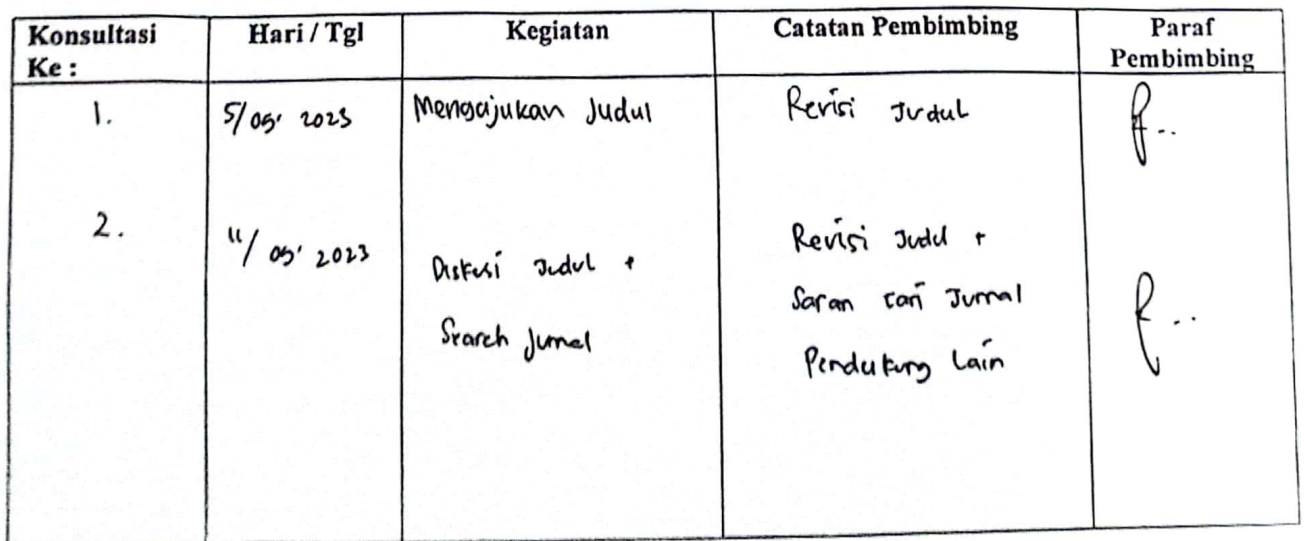 Konsultasi Ke : Hari / Tgl Kegiatan Catatan Pembimbing Paraf Pembimbing
1. 5/09' 2023 Mengajukan Judul Revisi Judul
2. 11/09' 2023 Diskusi Judul + Revisi Judul +
Search Jurnal Saran cari Jurnal
Pendukung Lain